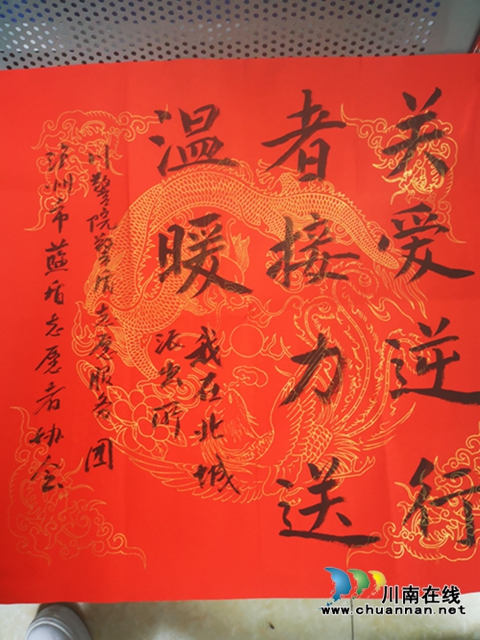 关爱逆行
者接力送
温暖
我在北城
派出所
川警院警盾志愿服务团
泸州市蓝盾志愿者协会
川南在线
www.chuannan.net